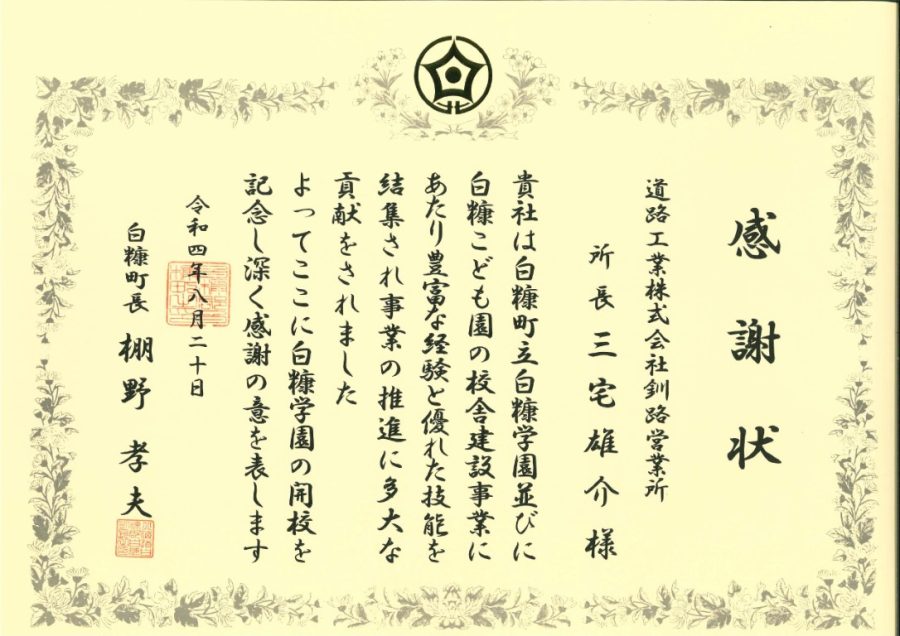 感謝状
道路工業株式会社釧路営業所
所長三宅雄介様
貴社は白糠町立白糠学園並びに
白糠こども園の校舎建設事業に
あたり豊富な経験と優れた技能を
結集され事業の推進に多大な
貢献をされました
よってここに白糠学園の開校を
記念し深く感謝の意を表します
令和四年八月二十日
白糠町長 棚野孝夫